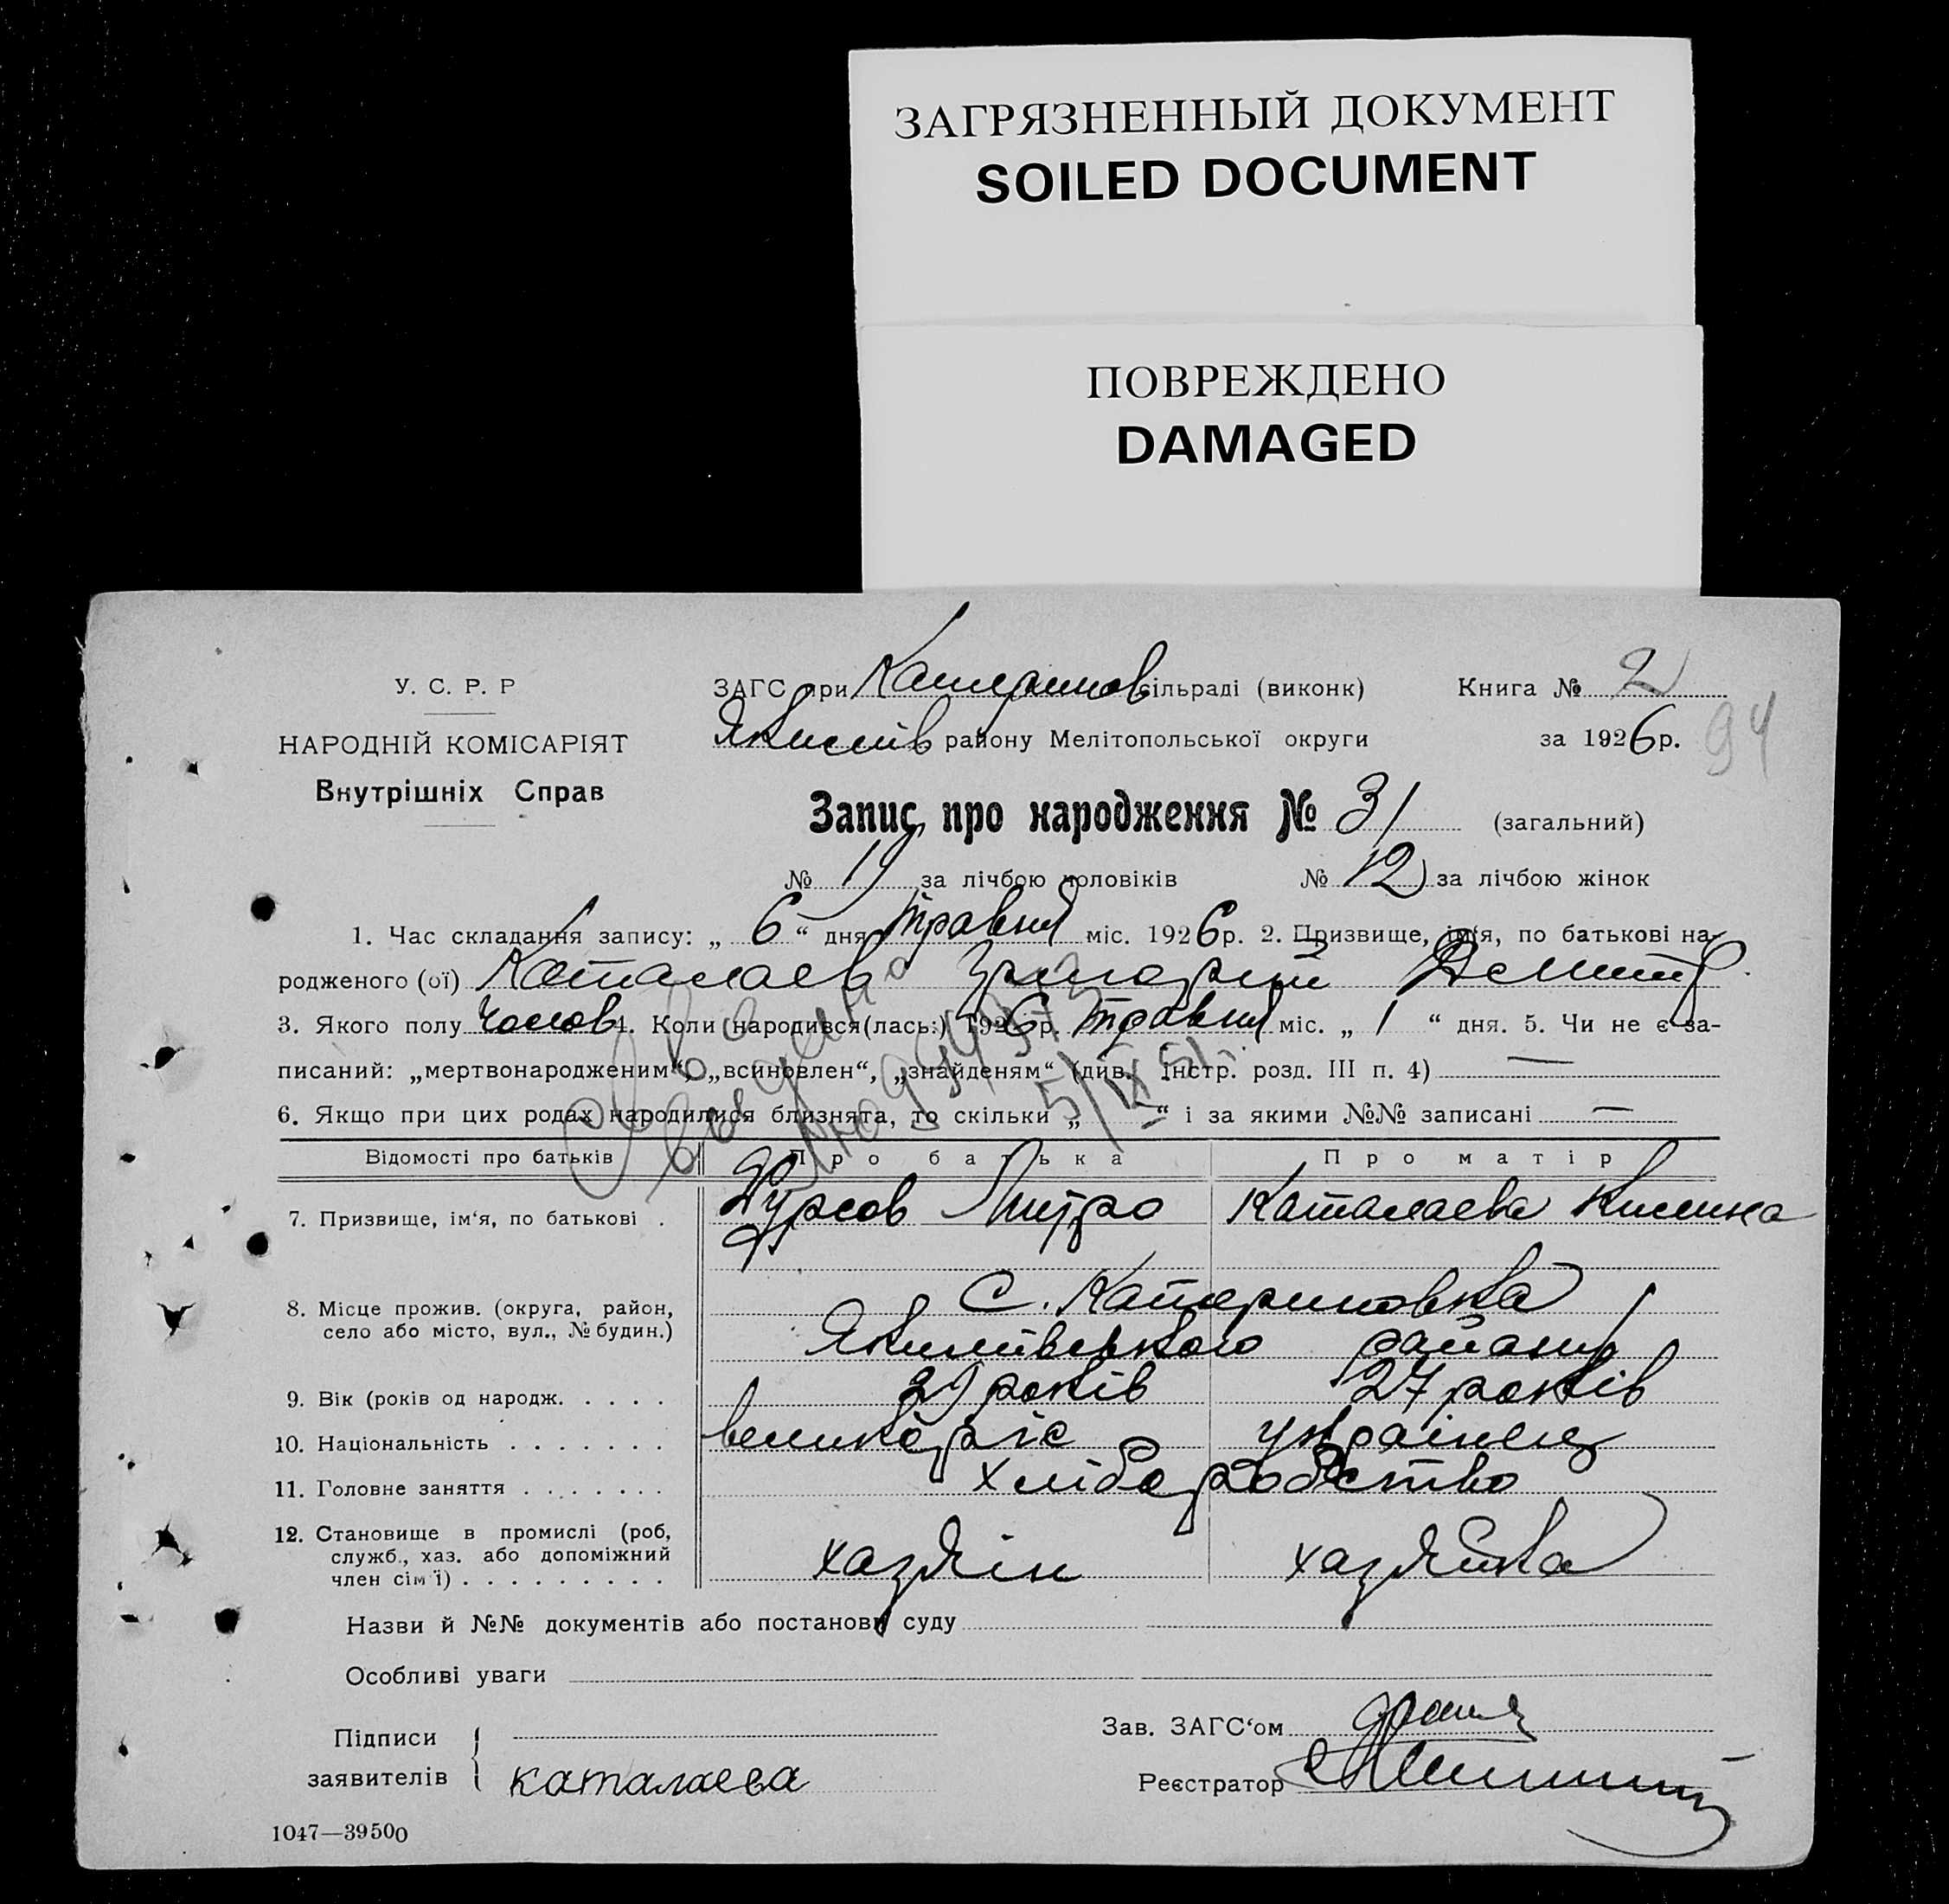 ЗАГРЯЗНЕННЫЙ ДОКУМЕНТ
SOILED DOCUMENT
ПОВРЕЖДЕНО
DAMAGED
У. С. Р. Р
НАРОДНІЙ КОМІСАРІЯТ
Внутрішніх Справ
ЗАГС при Катеринов сільраді (виконк) Книга № 2
Якимів району Мелітопольської округи за 1926 р. 94
Запис про народження № 31 (загальний)
№ 19 за лічбою чоловіків № 12 за лічбою жінок
1. Час складання запису: „ 6 “ дня травня міс. 1926 р. 2. Призвище, ім‘я, по батькові на-
родженого (ої) Каталаєв Григорий
3. Якого полу чолов 4. Коли народився(лась:) 1926 р. травня міс. „ 1 “ дня. 5. Чи не є за-
писаний: „мертвонародженим“, „всиновлен“, „знайденям“ (див. Інстр. розд. III п. 4) —
6. Якщо при цих родах народилися близнята, то скільки „ — “ і за якими №№ записані —
5/IX 51
Відомості про батьків Про батька Про матір
7. Призвище, ім‘я, по батькові . Митро Каталаева
8. Місце прожив. (округа, район,
село або місто, вул., № будин.)
С. Катериновка
Якимівського району
9. Вік (років од народж. . . . . 29 років 27 років
10. Національність . . . . . . . великоріс українец
11. Головне заняття . . . . . . . хліборобство
12. Становище в промислі (роб,
служб., хаз. або допоміжний
член сім‘ї) . . . . . . . . . хазяін хазяйка
Назви й №№ документів або постанови суду
Особливі уваги
Підписи
заявителів каталаева
Зав. ЗАГС‘ом
Реєстратор
1047—39500